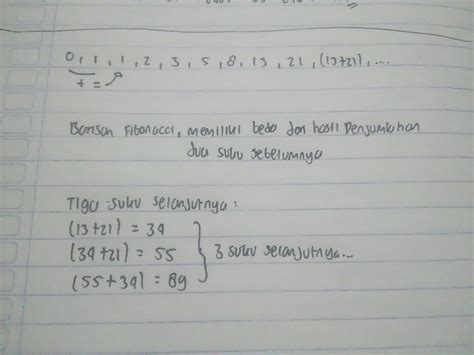 0, 1, 1, 2, 3, 5, 8, 13, 21, (13+21), ....
+ =
Barisan Fibonacci, memiliki beda dari hasil Penjumlahan
dua suku sebelumnya
Tiga suku selanjutnya :
(13+21) = 34
(34+21) = 55
(55+34) = 89
3 suku selanjutnya...